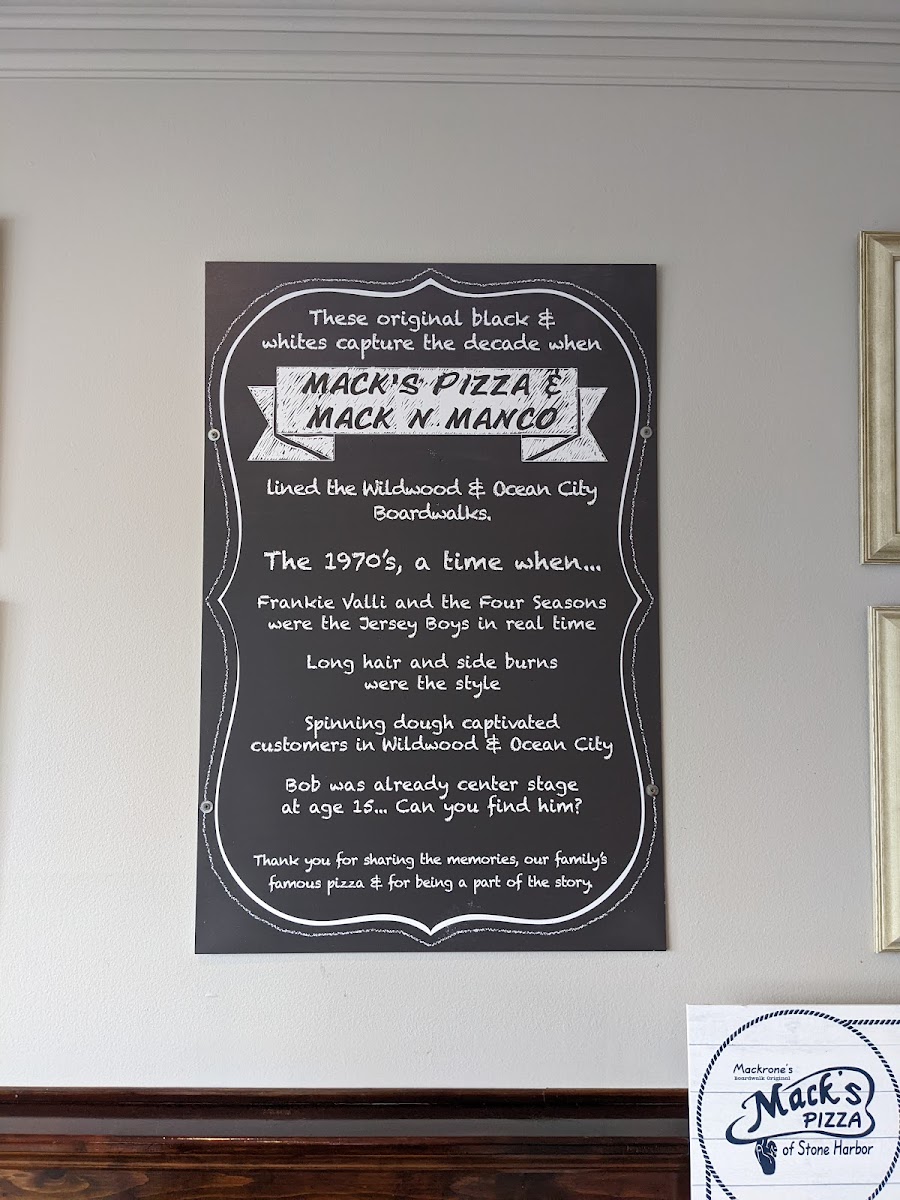 These original black &
whites capture the decade when
MACK'S PIZZA &
MACK N MANCO
lined the Wildwood & Ocean City
Boardwalks.
The 1970's, a time when...
Frankie Valli and the Four Seasons
were the Jersey Boys in real time
Long hair and side burns
were the style
Spinning dough captivated
customers in Wildwood & Ocean City
Bob was already center stage
at age 15... Can you find him?
Thank you for sharing the memories, our family's
famous pizza & for being a part of the story.
Mackrone's
Boardwalk Original
Mack's
PIZZA
of Stone Harbor